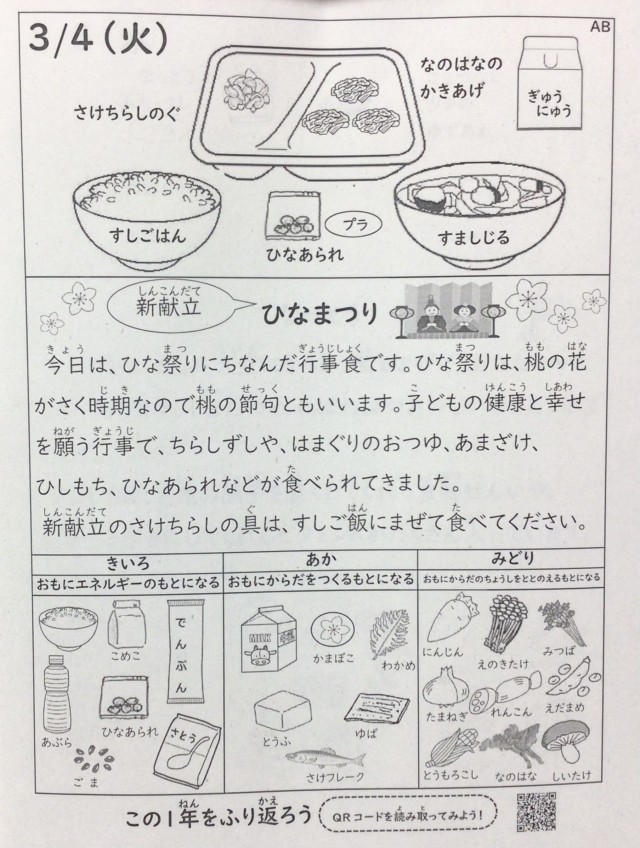 AB
3/4(火)
さけちらしのぐ
なのはなの
かきあげ
ぎゅう
にゅう
すしごはん
プラ
ひなあられ
すましじる
新献立 ひなまつり
今日は、ひな祭りにちなんだ行事食です。ひな祭りは、桃の花
がさく時期なので桃の節句ともいいます。子どもの健康と幸せ
を願う行事で、ちらしずしや、はまぐりのおつゆ、あまざけ、
ひしもち、ひなあられなどが食べられてきました。
新献立のさけちらしの具は、すしご飯にまぜて食べてください。
きいろ
おもにエネルギーのもとになる
こめこ
でんぷん
あぶら
ひなあられ
さとう
ごま
あか
おもにからだをつくるもとになる
MILK
かまぼこ
わかめ
とうふ
ゆば
さけフレーク
みどり
おもにからだのちょうしをととのえるもとになる
にんじん
えのきたけ
みつば
たまねぎ
れんこん
えだまめ
とうもろこし
なのはな
しいたけ
この1年をふり返ろう
QRコードを読み取ってみよう!